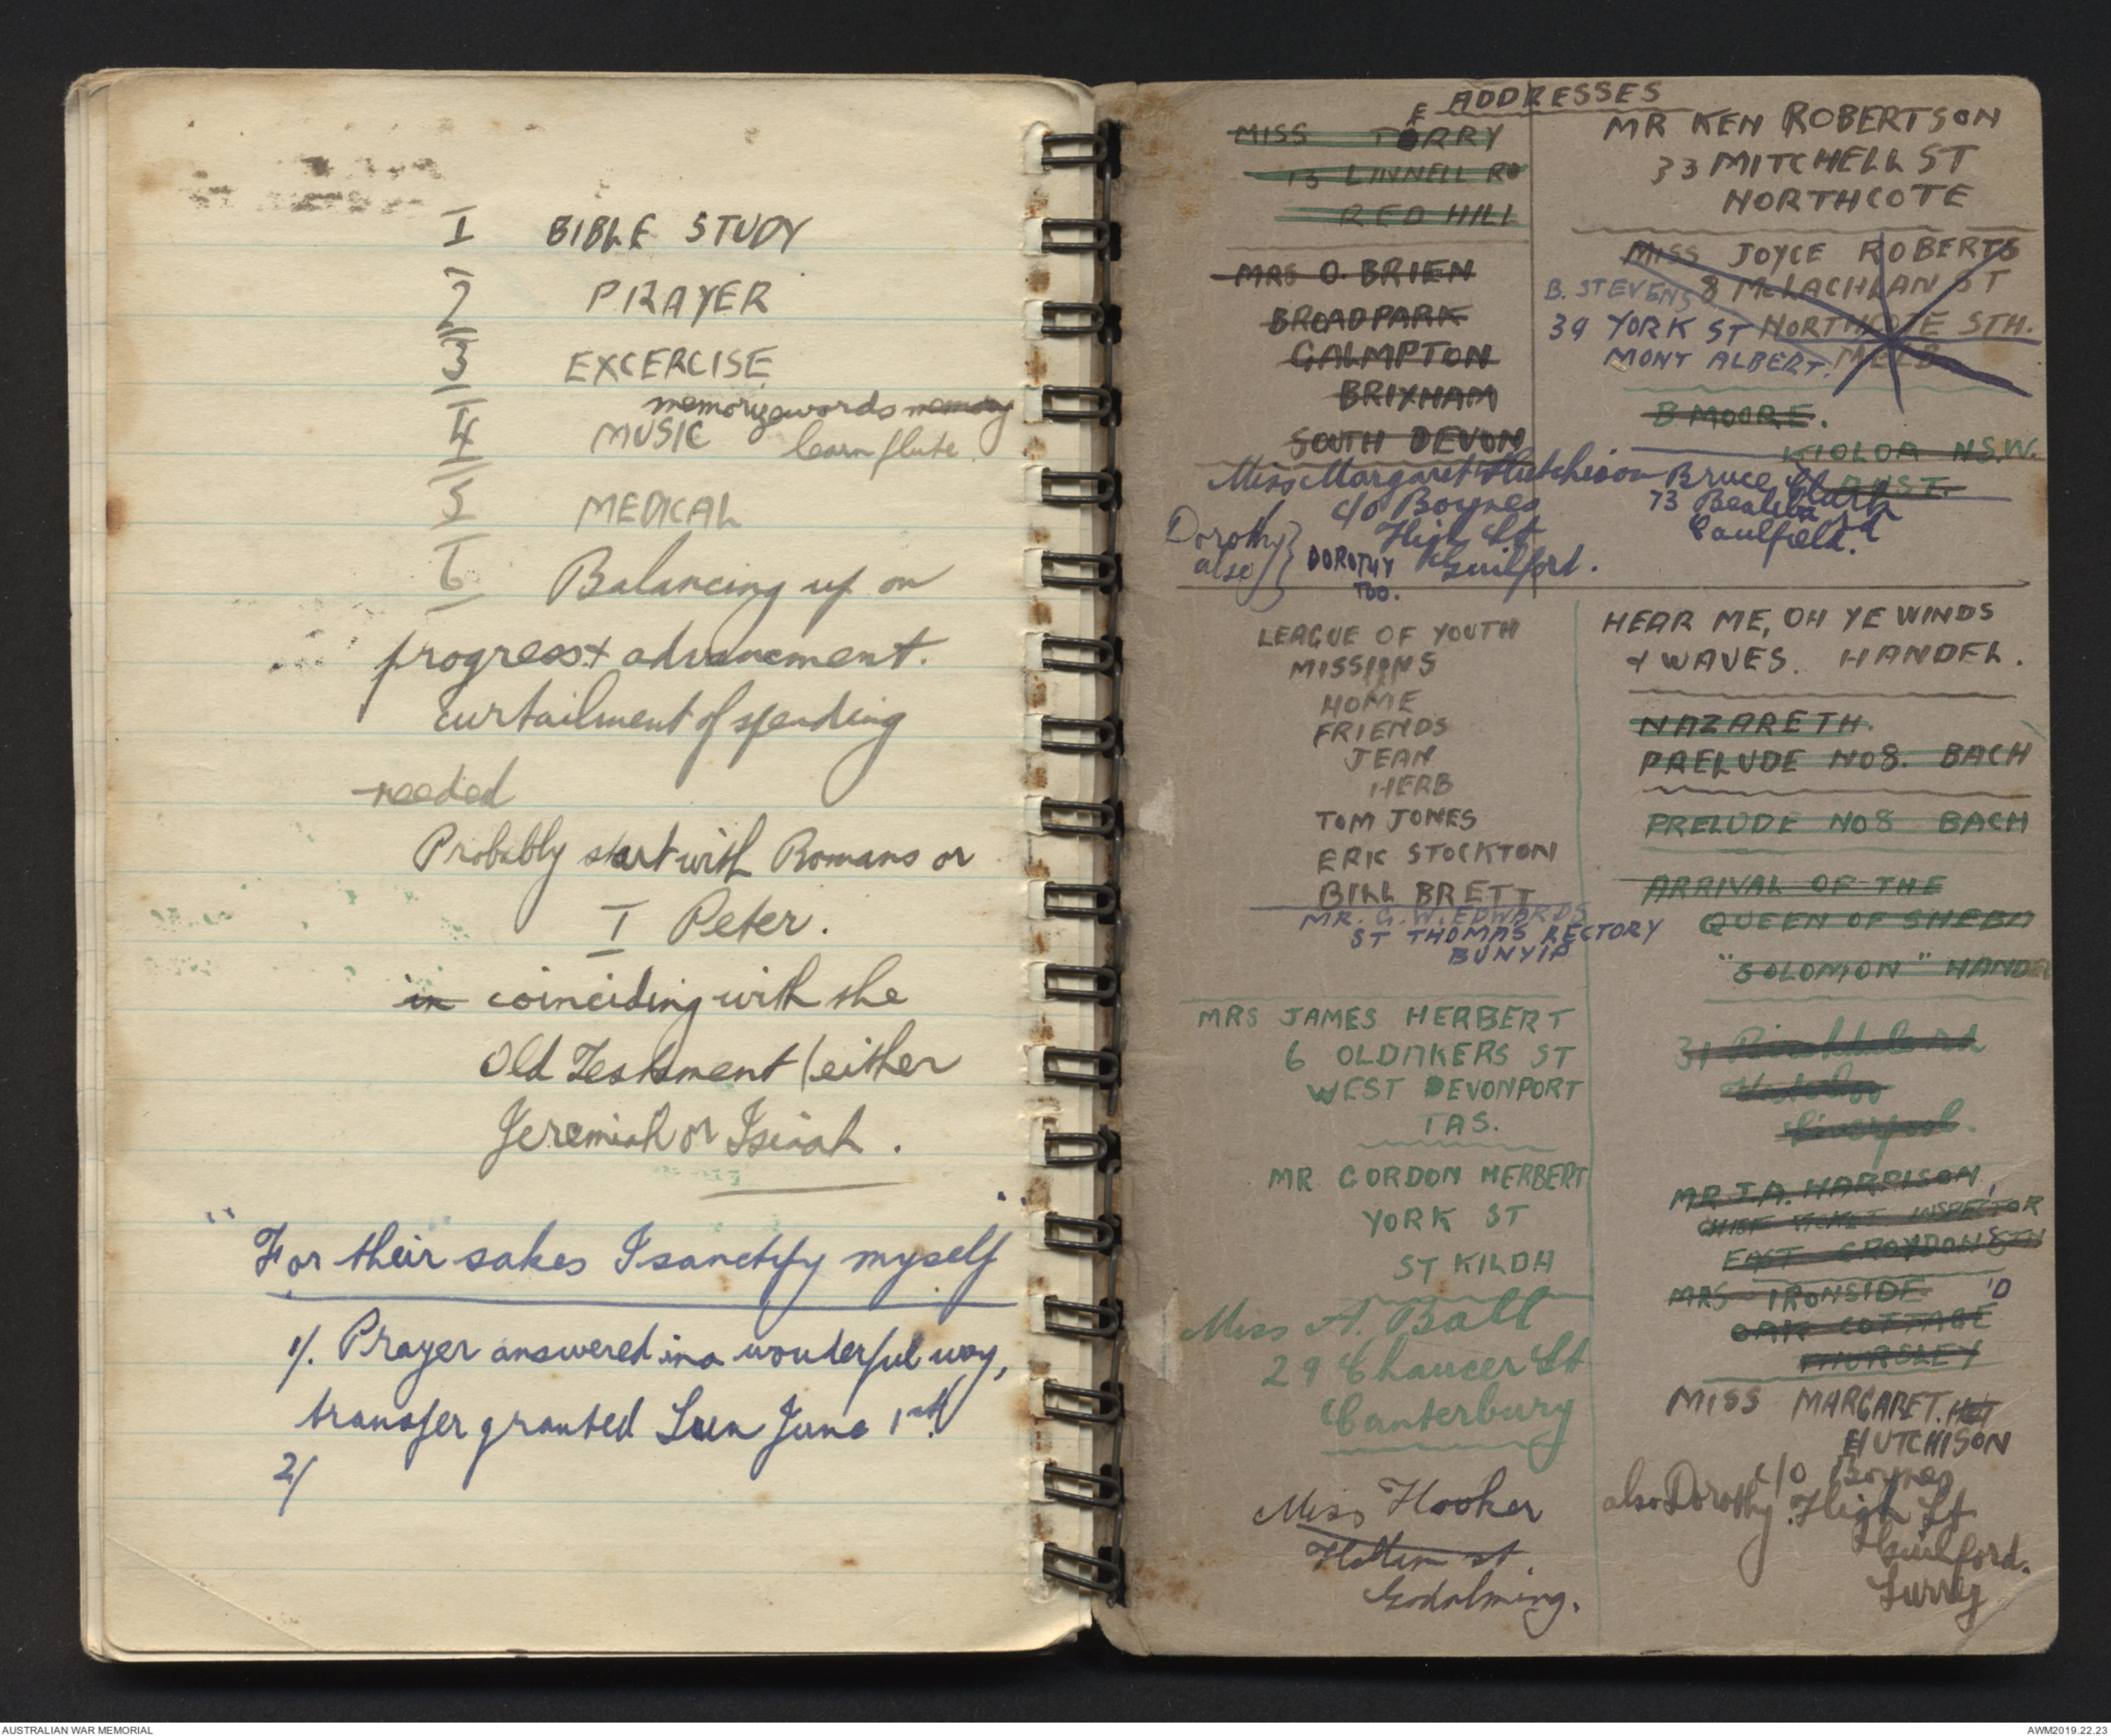 I BIBLE STUDY
2 PRAYER
3 EXCERCISE
memory words memory
4 MUSIC learn flute
5 MEDICAL
6 Balancing up on
progress + advancement.
curtailment of spending
needed
Probably start with Romans or
I Peter.
in coinciding with the
Old Testament (either
Jeremiah or Isiah.
"For their sakes I sanctify myself"
1/. Prayer answered in a wonderful way,
transfer granted Sun June 1st
2/
ADDRESSES
MISS TERRY
13 LINNELL RD
RED HILL
MRS O. BRIEN
BROADPARK
GALMPTON
BRIXHAM
SOUTH DEVON
Miss Margaret Hutchison
c/o Boynes
High St
Guilford.
Dorothy
also
DOROTHY
TOO.
MR KEN ROBERTSON
33 MITCHELL ST
NORTHCOTE
MISS JOYCE ROBERTS
8 McLACHLAN ST
NORTHCOTE STH.
MELB
B. STEVENS
39 YORK ST
MONT ALBERT.
B MOORE.
KIOLOA N.S.W.
Bruce
73
Caulfield.
LEAGUE OF YOUTH
MISSIONS
HOME
FRIENDS
JEAN
HERB
TOM JONES
ERIC STOCKTON
BILL BRETT
MR. G. W. EDWARDS
ST THOMAS RECTORY
BUNYIP
MRS JAMES HERBERT
6 OLDAKERS ST
WEST DEVONPORT
TAS.
MR GORDON HERBERT
YORK ST
ST KILDA
Miss A. Batt
29 Chaucer St
Canterbury
Miss Hooker
Godalming.
HEAR ME, OH YE WINDS
+ WAVES. HANDEL.
NAZARETH.
PRELUDE NO8. BACH
PRELUDE NO8 BACH
ARRIVAL OF THE
QUEEN OF SHEBA
"SOLOMON" HANDEL
31 Rd
Liverpool.
MR J.A. HARRISON,
CHIEF TICKET INSPECTOR
EAST CROYDON STN
MRS IRONSIDE 'D
OAK COTTAGE
THURSLEY
MISS MARGARET. HUT
HUTCHISON
c/o Boynes
also Dorothy High St
Guilford.
Surrey
AUSTRALIAN WAR MEMORIAL
AWM2019.22.23